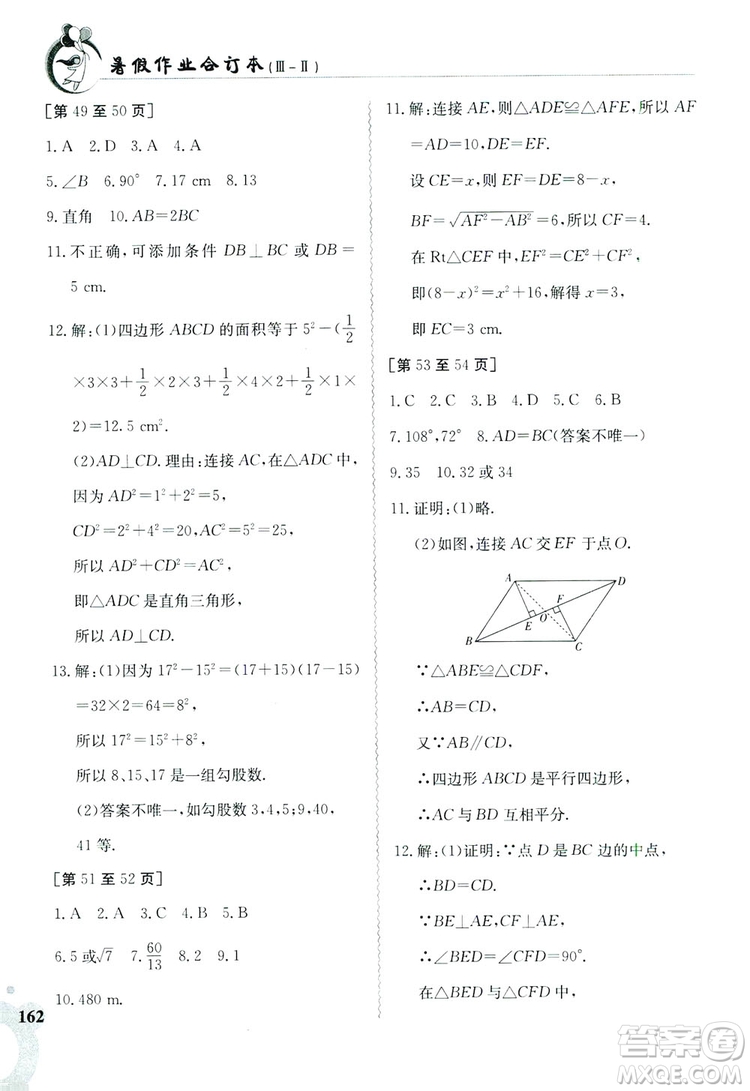 暑假作业合订本(Ⅲ-Ⅱ)
[第 49 至 50 页]
1. A 2. D 3. A 4. A
5. ∠B 6. 90° 7. 17 cm 8. 13
9. 直角 10. AB=2BC
11. 不正确,可添加条件 DB⊥BC 或 DB=
5 cm.
12. 解:(1)四边形 ABCD 的面积等于 5²-(1/2
×3×3+1/2×2×4+1/2×2×4+1/2×1×
2)=12.5 cm².
(2)AD⊥CD. 理由:连接 AC,在△ADC 中,
因为 AD²=1²+2²=5,
CD²=2²+4²=20,AC²=5²=25,
所以 AD²+CD²=AC²,
即△ADC 是直角三角形,
所以 AD⊥CD.
13. 解:(1)因为 17²-15²=(17+15)(17-15)
=32×2=64=8²,
所以 17²=15²+8²,
所以 8、15、17 是一组勾股数.
(2)答案不唯一,如勾股数 3,4,5;9,40,
41 等.
[第 51 至 52 页]
1. A 2. A 3. C 4. B 5. C
6. 5 或√7 7. 60/13 8. 2 9. 1
10. 480 m.
162
11. 解:连接 AE,则△ADE≌△AFE,所以 AF
=AD=10,DE=EF.
设 CE=x,则 EF=DE=8-x,
BF=√(AF²-AB²)=6,所以 CF=4.
在 Rt△CEF 中,EF²=CE²+CF²,
即(8-x)²=x²+16,解得 x=3.
即 EC=3 cm.
[第 53 至 54 页]
1. C 2. C 3. D 4. C 5. D 6. B
7. 108°,72° 8. AD=BC(答案不唯一)
9. 35 10. 32 或 34
11. 证明:(1)略.
(2)如图,连接 AC 交 EF 于点 O.
A D
F
E O
B C
∵△ABE≌△CDF,
∴AB=CD,
又∵AB∥CD,
∴四边形 ABCD 是平行四边形,
∴AC 与 BD 互相平分.
12. 解:(1)证明:∵点 D 是 BC 边的中点,
∴BD=CD.
∵BE⊥AE,CF⊥AE,
∴∠BED=∠CFD=90°.
在△BED 与△CFD 中,
作业帮
MXQE.COM